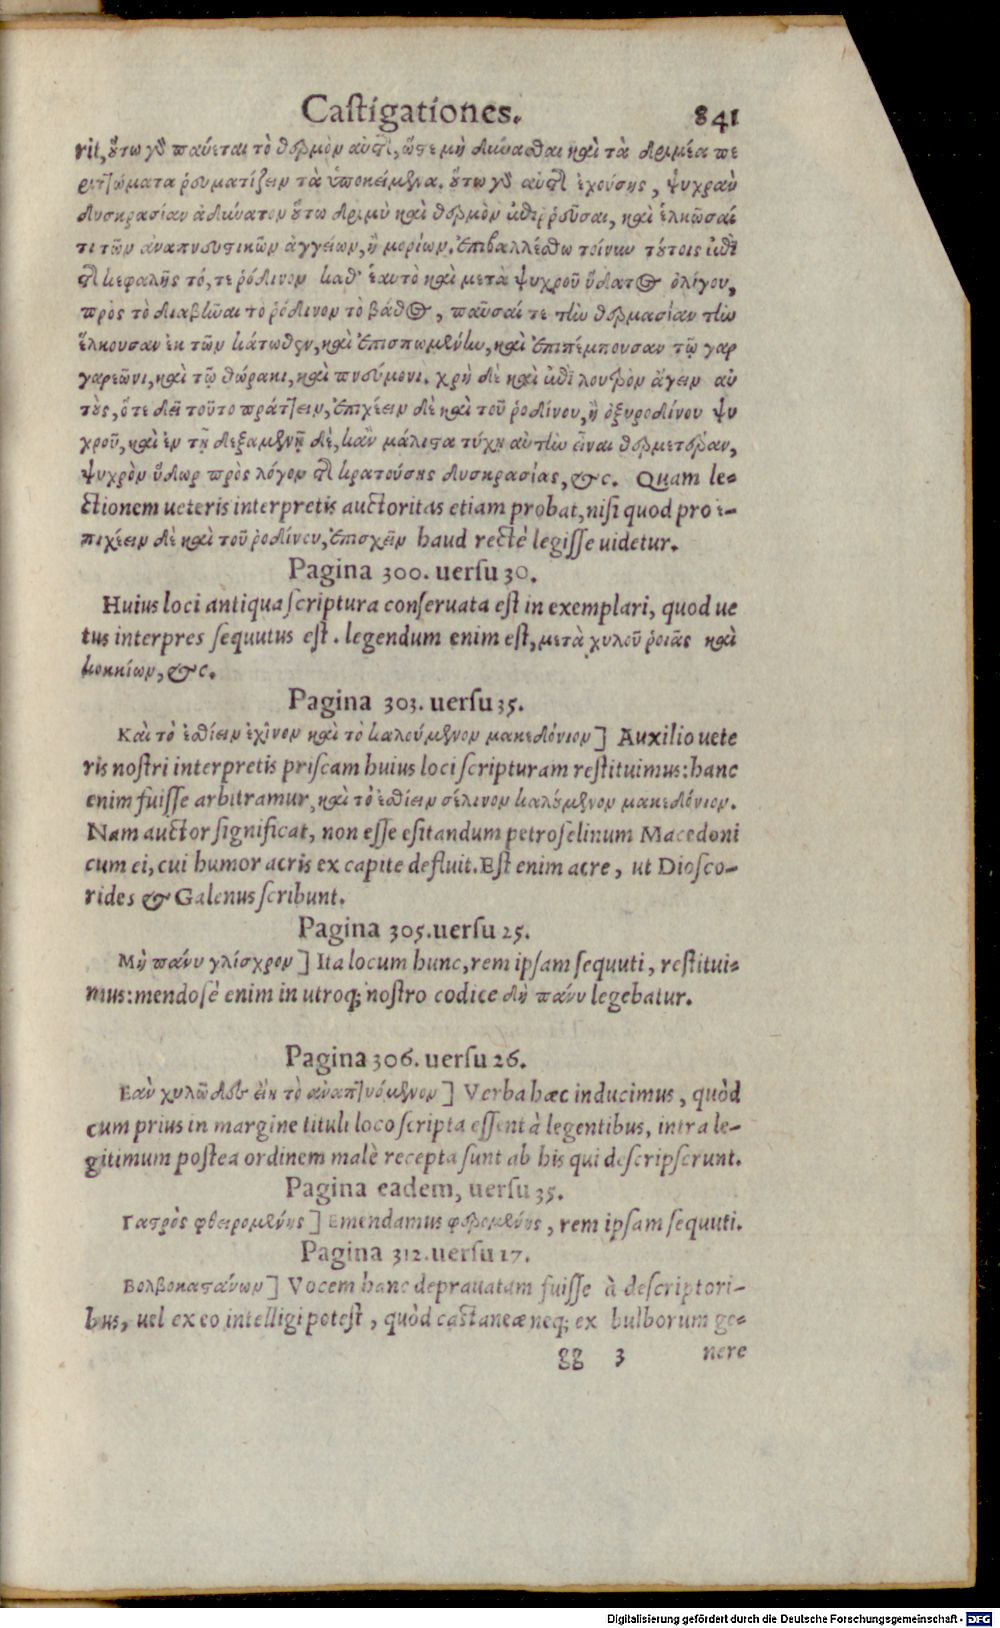 Castigationes. 841
rit, οὕτω γὰρ παύεται τὸ θερμὸν αὐτῆς, ὥστε μὴ δύνασθαι καὶ τὰ δριμέα πε
ριττώματα ῥευματίζειν τὰ ὑποκείμενα. οὕτω γὰρ αὐτῆς ἐχούσης, ψυχρὰν
δυσκρασίαν ἀδύνατον οὕτω δριμὺ καὶ θερμὸν ἐπιῤῥεῦσαι, καὶ ἑλκῶσαί
τι τῶν ἀναπνευστικῶν ἀγγείων, ἢ μορίων. ἐπιβαλλέσθω τοίνυν τούτοις ἐπὶ
τῆς κεφαλῆς τό, τε ῥόδινον καθ' ἑαυτὸ καὶ μετὰ ψυχροῦ ὕδατος ὀλίγου,
πρὸς τὸ διαβῆναι τὸ ῥόδινον τὸ βάθος, παῦσαί τε τὴν θερμασίαν τὴν
ἕλκουσαν ἐκ τῶν κάτωθεν, καὶ ἐπισπωμένην, καὶ ἐπιπέμπουσαν τῷ γαρ
γαρεῶνι, καὶ τῷ θώρακι, καὶ πνεύμονι. χρὴ δὲ καὶ ἐπὶ λουτρὸν ἄγειν αὐ
τοὺς, ὅτε δεῖ τοῦτο πράττειν, ἐπιχέειν δὲ καὶ τοῦ ῥοδίνου, ἢ ὀξυροδίνου ψυ
χροῦ, καὶ ἐν τῇ δεξαμενῇ δὲ, κἂν μάλιστα τύχῃ αὐτὴν εἶναι θερμετέραν,
ψυχρὸν ὕδωρ πρὸς λόγον τῆς κρατούσης δυσκρασίας, &c. Quam le-
ctionem ueteris interpretis auctoritas etiam probat, nisi quod pro ἐ-
πιχέειν δὲ καὶ τοῦ ῥοδίνου, ἐπισχεῖν haud rectè legisse uidetur.
Pagina 300. uersu 30.
Huius loci antiqua scriptura conseruata est in exemplari, quod ue
tus interpres sequutus est. legendum enim est, μετὰ χυλοῦ ῥοιᾶς καὶ
κοκκίων, &c.
Pagina 303. uersu 35.
Καὶ τὸ ἐσθίειν ἐχῖνον καὶ τὸ καλούμενον μακεδόνιον] Auxilio uete
ris nostri interpretis priscam huius loci scripturam restituimus: hanc
enim fuisse arbitramur, καὶ τὸ ἐσθίειν σέλινον καλούμενον μακεδόνιον.
Nam auctor significat, non esse esitandum petroselinum Macedoni
cum ei, cui humor acris ex capite defluit. Est enim acre, ut Diosco-
rides & Galenus scribunt.
Pagina 305. uersu 25.
Μὴ πάνυ γλίσχρον] Ita locum hunc, rem ipsam sequuti, restitui-
mus: mendosè enim in utroq; nostro codice δὴ πάνυ legebatur.
Pagina 306. uersu 26.
Εαν χυλῶδες εἴη τὸ ἀναπτυόμενον] Verba hæc inducimus, quòd
cum prius in margine tituli loco scripta essent à legentibus, intra le-
gitimum postea ordinem malè recepta sunt ab his qui descripserunt.
Pagina eadem, uersu 35.
Γαστρὸς φθειρομένης] Emendamus φερομένης, rem ipsam sequuti.
Pagina 312. uersu 17.
Βολβοκαστάνων] Vocem hanc deprauatam fuisse à descriptori-
bus, uel ex eo intelligi potest, quòd castaneæ neq; ex bulborum ge-
gg 3 nere
Digitalisierung gefördert durch die Deutsche Forschungsgemeinschaft - DFG